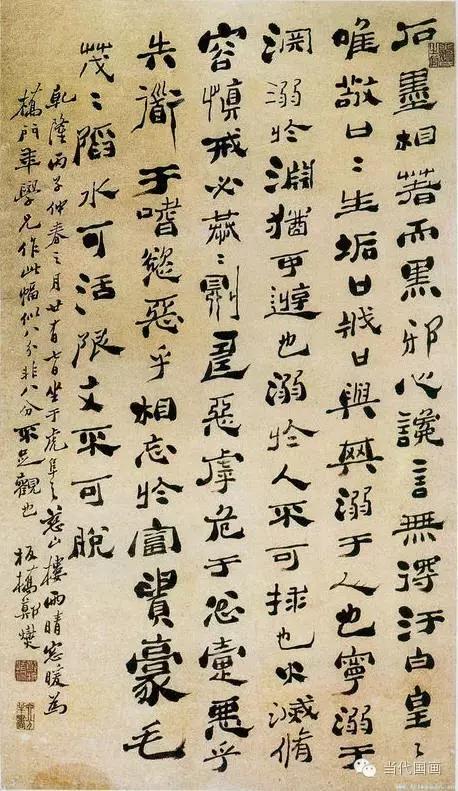 石墨相著而黑邪心讒言無得汙白皇〻
唯敬口〻生垢口戕口與其溺于人也寧溺于
淵溺於淵猶可遊也溺於人不可捄也火滅脩
容慎戒必恭〻則壽惡乎危于忿疐惡乎
失道于嗜慾惡乎相忘於富貴豪毛
茂〻陷水可活陷文不可脫
乾隆丙子仲春之月廿有七日坐于虎阜之山樓雨晴窓暖為
橋門年學兄作此幅似八分非八分不足觀也 板橋鄭燮
当代国画